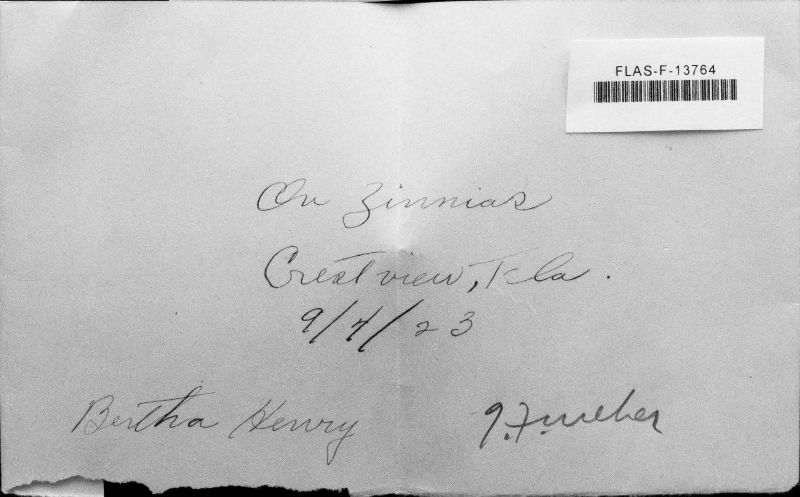 FLAS-F-13764
On Zinnias
Crestview, Fla.
9/4/23
Bertha Henry
G.F. Weber